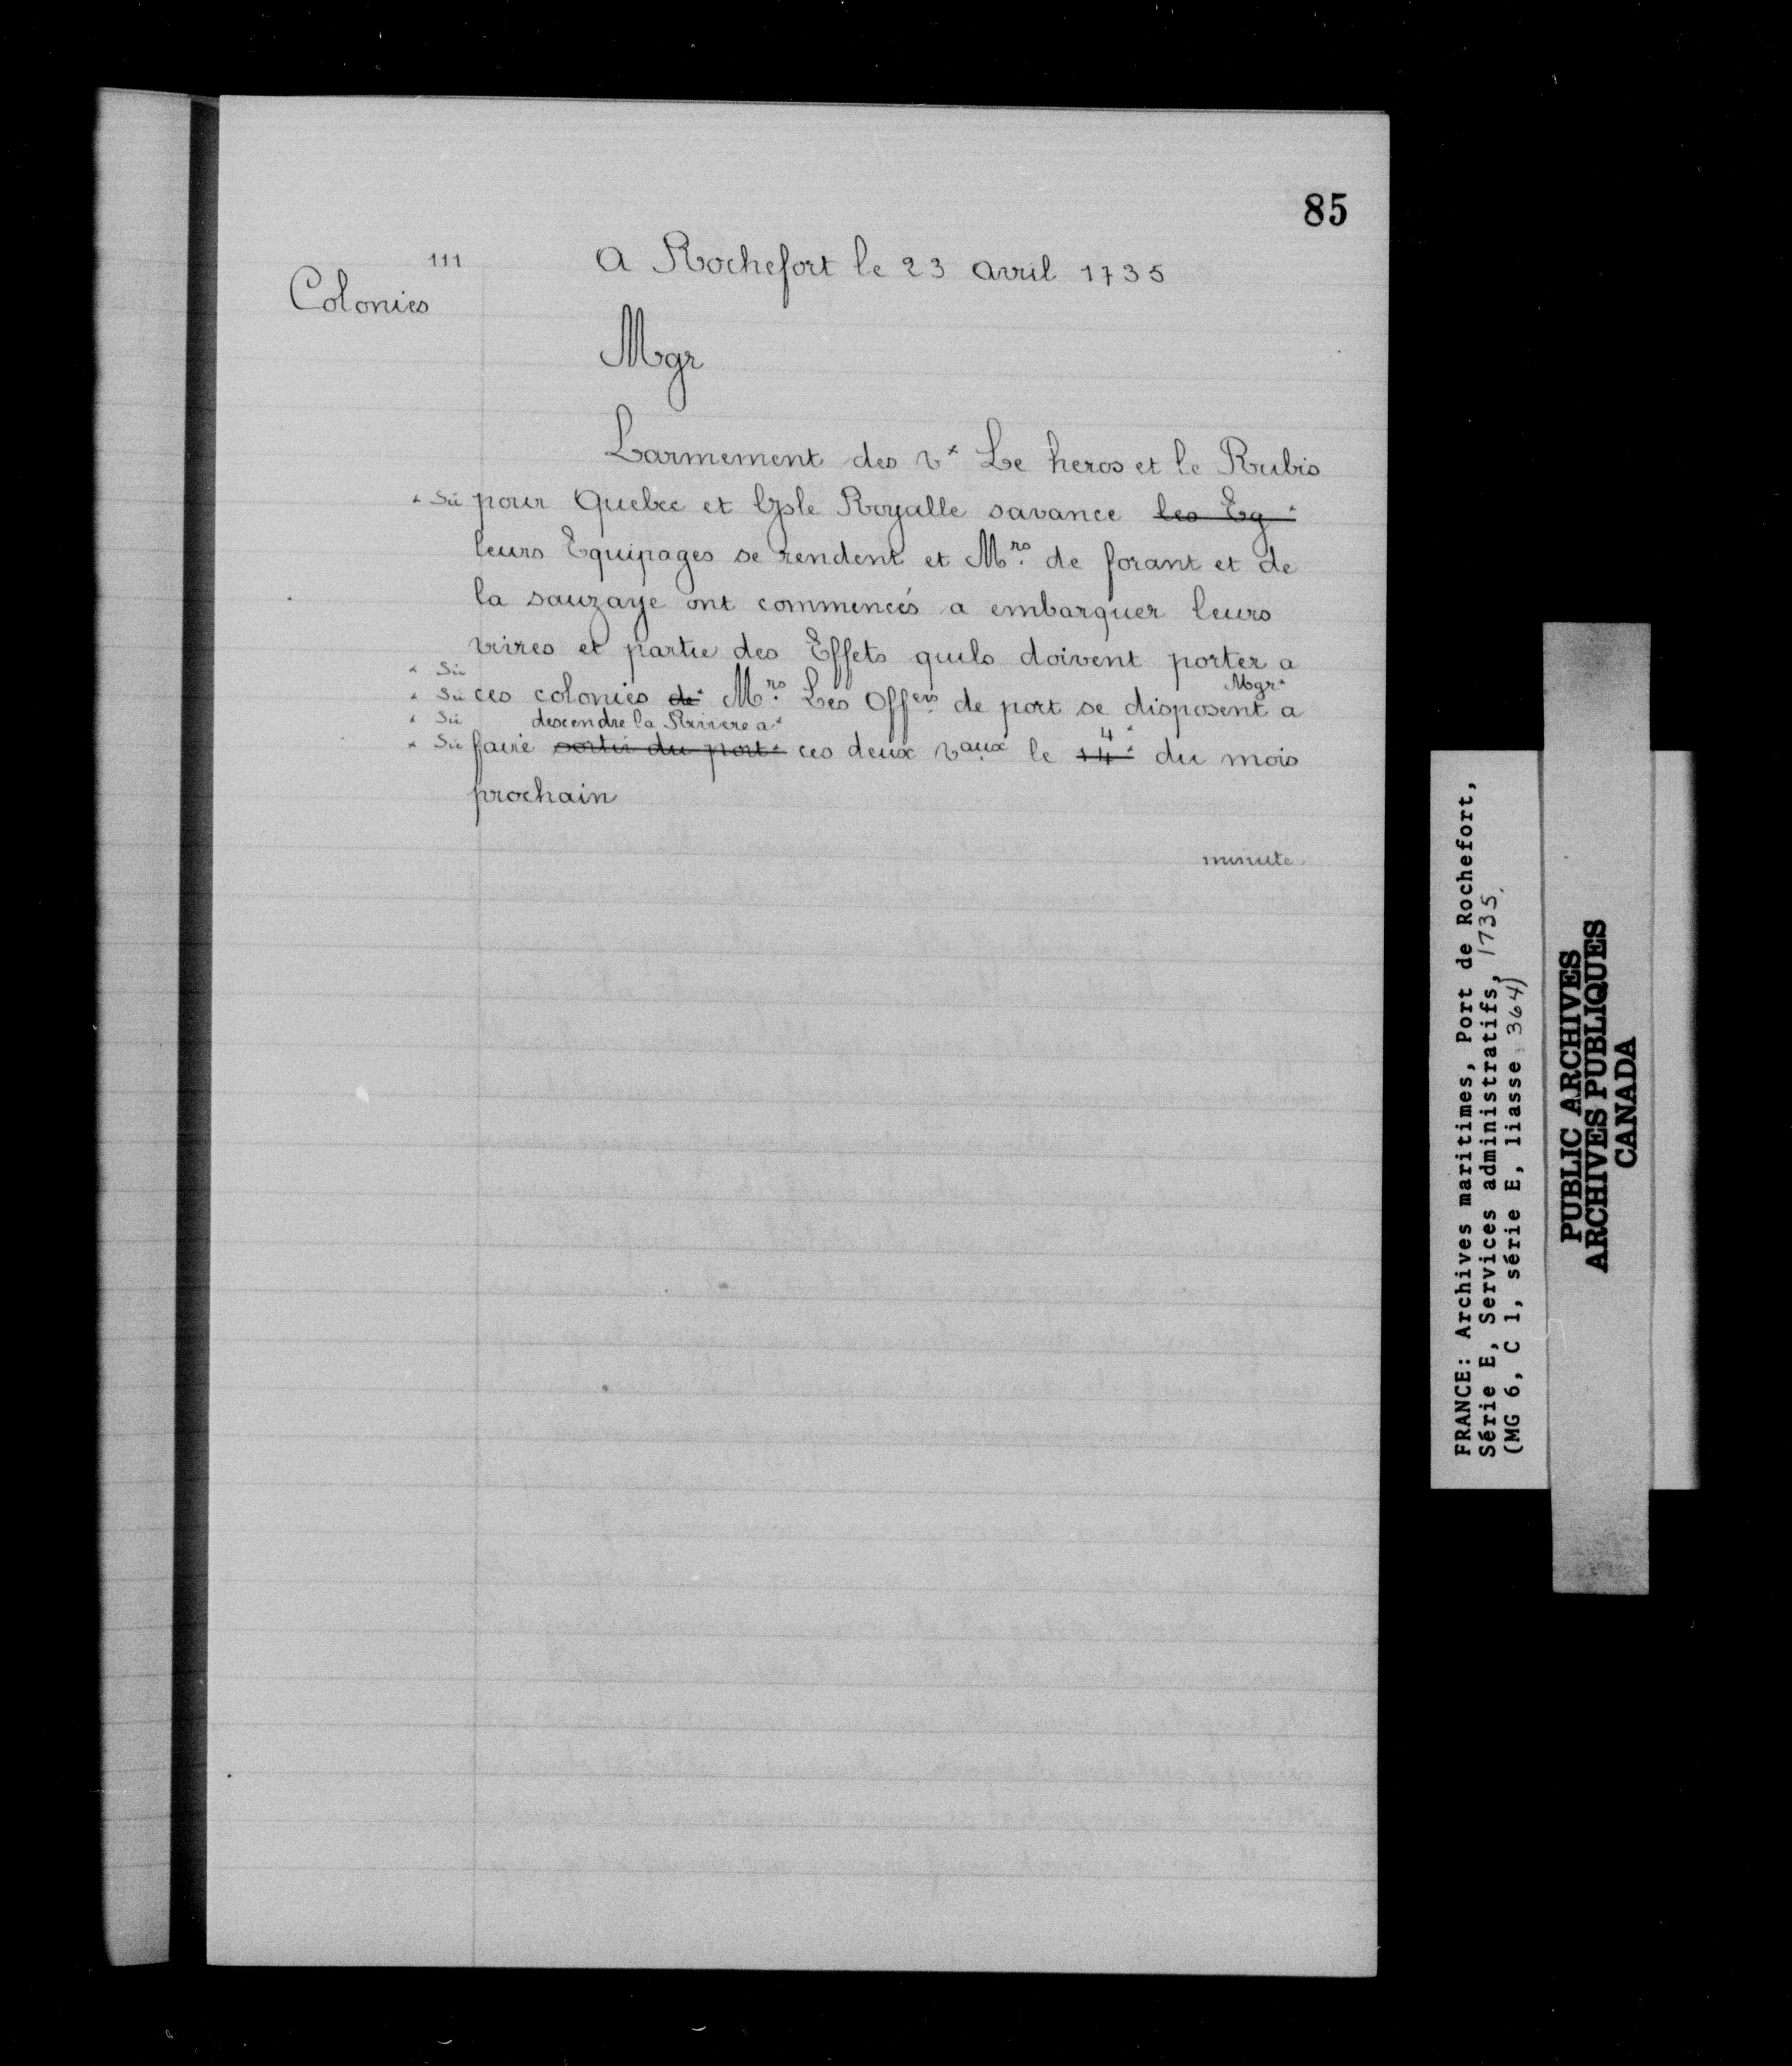 85
111
A Rochefort le 23 avril 1735
Colonies
Mgr
Larmement des vx Le heros et le Rubis
x Sic pour Quebec et Lysle Royalle savance les Eq x
leurs Equipages se rendent et Mrs. de forant et de
la sauzaye ont commencés a embarquer leurs
vivres et partie des Effets quils doivent porter a
x Sic Mgr x
x Sic ces colonies de x Mrs. Les Offers. de port se disposent a
x Sic descendre la Riviere a x 4 x
x Sic faire sortir du port x ces deux vaux. le 14 x du mois
prochain
minute.
FRANCE: Archives maritimes, Port de Rochefort,
Série E, Services administratifs, 1735.
(MG 6, C 1, série E, liasse 364)
PUBLIC ARCHIVES
ARCHIVES PUBLIQUES
CANADA